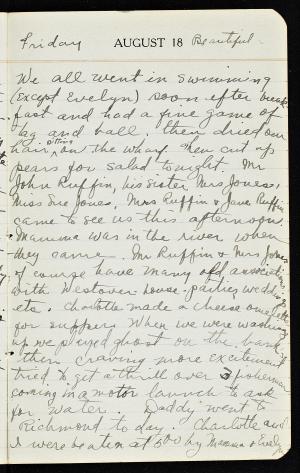 Friday AUGUST 18 Beautiful -
We all went in swimming
(except Evelyn) soon after break
fast and had a fine game of
tag and ball, then dried our
hair sitting on the wharf. Then cut up
pears for salad tonight. Mr
John Ruffin, his sister Mrs Jones,
Miss Sue Jones, Mrs Ruffin & Jane Ruffin
came to see us this afternoon.
Mamma was in the river when
they came. Mr Ruffin & Mrs Jones
of course have many old associations
with Westover - house-parties, weddings
etc. Charlotte made a cheese omelette
for supper. When we were washing
up we played ghost on the bank
then craving more excitement
tried to get a thrill over 3 fisherman
coming in a motor launch to ask
for water. Daddy went to
Richmond to day. Charlotte and
I were beaten at 500 by Mamma & Evelyn